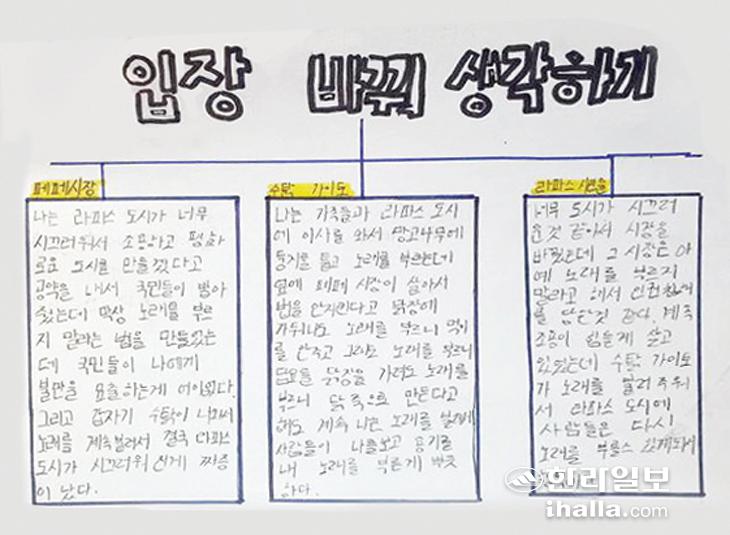 입장 바꿔 생각하기
페페시장
나는 라파스 도시가 너무
시끄러워서 조용하고 평화
로운 도시를 만들겠다고
공약을 내서 국민들이 뽑아
줬는데 막상 노래를 부르
지 말라는 법을 만들었는
데 국민들이 나에게
불만을 표출하는게 어이없다.
그리고 갑자기 수탉이 나와서
노래를 계속 불러서 결국 라파스
도시가 시끄러워 진게 짜증
이 났다.
수탉 가이도
나는 가족들과 라파스 도시
에 이사를 와서 망고나무에
둥지를 틀고 노래를 부르는데
옆에 페페 시장이 살아서
법을 안지킨다고 닭장에
가둬놔도 노래를 부르니 먹이
를 안주고 그래도 노래를 부르니
담요를 닭장을 가려도 노래를
부르니 닭죽으로 만든다고
해도 계속 나는 노래를 불렀는데
사람들이 나를보고 용기를
내 노래를 부른게 뿌듯
하다.
라파스 시민들
너무 도시가 시끄러
운것 같아서 시장을
바꿨는데 그 시장은 아
예 노래를 부르지
말라고 해서 인권침해
를 당한것 같다. 계속
조용히 힘들게 살고
있었는데 수탉 가이도
가 노래를 불러줘
서 라파스 도시에
사람들은 다시
노래를 부를수 있게되서
한라일보
ihalla.com